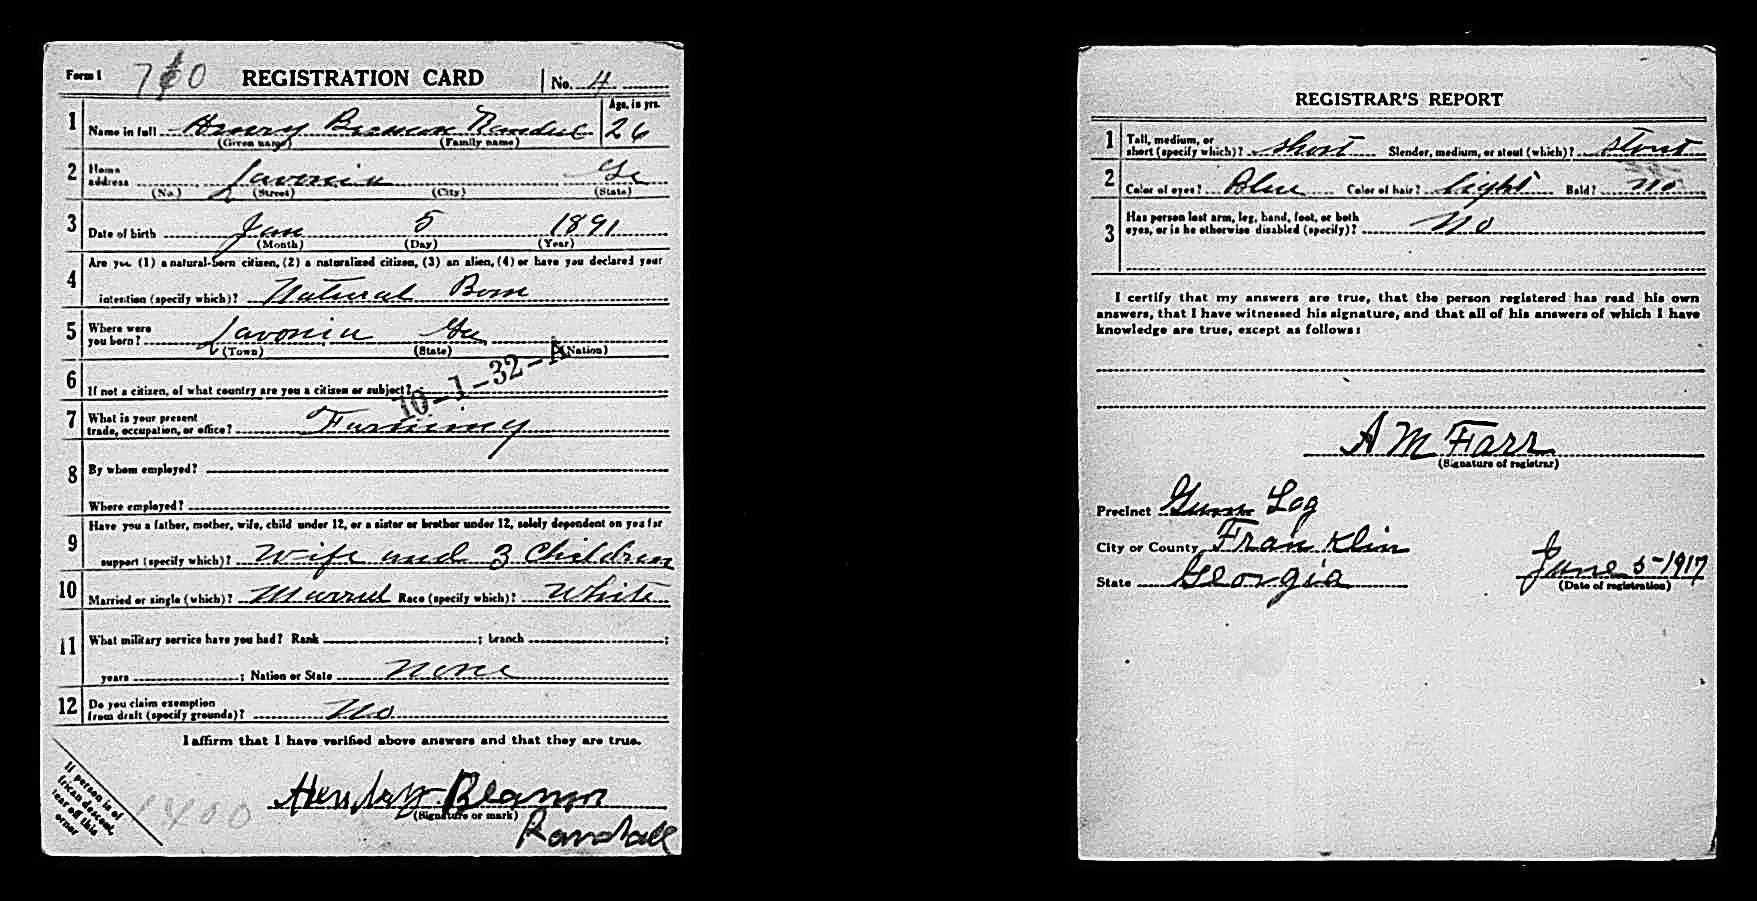 Form 1 REGISTRATION CARD No. 4
1 Name in full Henry (Given name) (Family name) Age, in yrs. 26
2 Home address (No.) (Street) Lavonia (City) Ga (State)
3 Date of birth Jan (Month) 5 (Day) 1891 (Year)
4 Are you (1) a natural-born citizen, (2) a naturalized citizen, (3) an alien, (4) or have you declared your
intention (specify which)? Natural Born
5 Where were you born? Lavonia (Town) Ga (State) (Nation)
6 If not a citizen, of what country are you a citizen or subject?
10-1-32-A
7 What is your present trade, occupation, or office? Farming
8 By whom employed?
Where employed?
9 Have you a father, mother, wife, child under 12, or a sister or brother under 12, solely dependent on you for
support (specify which)? Wife and 3 Children
10 Married or single (which)? Married Race (specify which)? White
11 What military service have you had? Rank ; branch ;
years ; Nation or State None
12 Do you claim exemption from draft (specify grounds)? No
I affirm that I have verified above answers and that they are true.
(Signature or mark)
Randall
If person is of
African descent,
tear off this
corner
1400
REGISTRAR'S REPORT
1 Tall, medium, or short (specify which)? short Slender, medium, or stout (which)? stout
2 Color of eyes? Blue Color of hair? light Bald? no
3 Has person lost arm, leg, hand, foot, or both
eyes, or is he otherwise disabled (specify)? No
I certify that my answers are true, that the person registered has read his own
answers, that I have witnessed his signature, and that all of his answers of which I have
knowledge are true, except as follows:
A M Farr
(Signature of registrar)
Precinct Gum Log
City or County Franklin
State Georgia June 5-1917
(Date of registration)